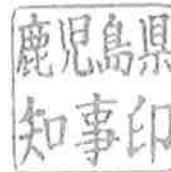 鹿児島県
知事印